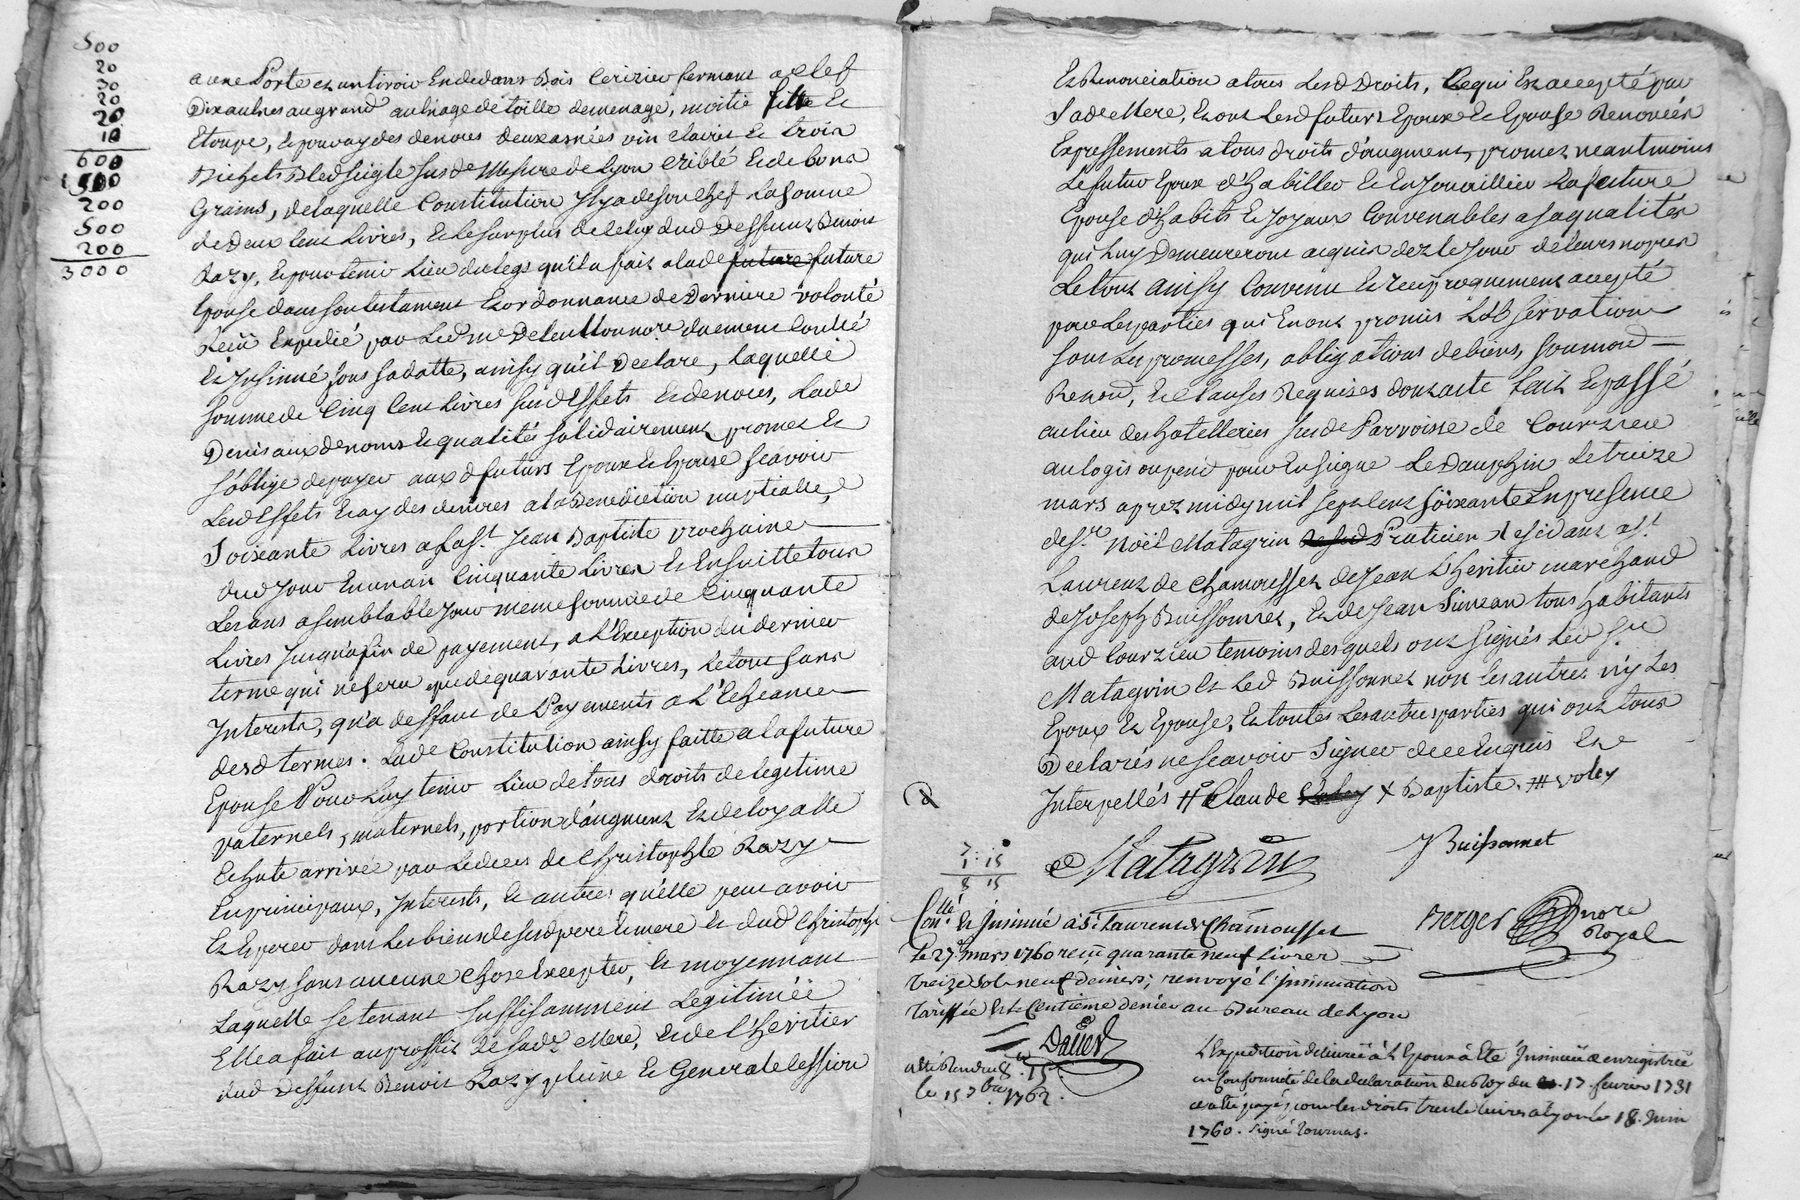 500
20
30
20
20
10
600
1500
200
500
200
3000
a une Porte et un tiroir En dedans Bois Cerizier fermant a clef
Dix aulnes au grand aulnage de toille de menage, moitié fille Et
Etoupe, Et pour aydes de noces deux asnées vin clairet Et trois
Bichets Bled seigle susde Mesure de Lyon criblé Et de bons
Grains, de laquelle Constitution Il y a de son chef La somme
de Deux Cent Livres, Et le surplus de celuy dud Deffunt Benoit
Razy, Et pour tenir Lieu du legs qu'il a fait a lade future future
Epouse dans son testament Et ordonnance de Derniere volonté
Receü Expedié par Led me nore duement Controllé
Et Insinué sous sa datte, ainsy qu'il Declare, Laquelle
somme de Cinq Cent Livres susd Effets Et denoces, Lade
Denis aux d noms Et qualités solidairement promet Et
s'oblige de payer aux d futurs Epoux Et Epouse scavoir
Lesd Effets Et aydes de noces a la Benediction nuptialle,
Soixante Livres a la st Jean Baptiste prochaine
dud jour En un an Cinquante Livres Et Ensuitte tous
Les ans a semblable jour meme somme de Cinquante
Livres jusqu'a fin de payement, a L'Exception du dernier
terme qui ne sera que de quarante Livres, Le tout sans
Interests, qu'a deffaut de Payements a L'Echeance
desd termes. Lade Constitution ainsy faitte a la future
Epouse Pour Luy tenir Lieu de tous droits de legitime
paternels, maternels, portion d'augment Et de loyalle
Echute arrivée par Le deces de Christophle Razy
En principaux, Interests, Et autres qu'elle peut avoir
Et Esperer dans Les biens de sesd pere Et mere Et dud Christophle
Razy sans aucune chose Excepter, Et moyennant
Laquelle se tenant suffisamment Legitimée
Elle a fait au proffit de sade Mere, Et de l'heritier
dud Deffunt Benoit Razy pleine Et Generale Cession
Et Renonciation a tous Lesd Droits, Ce qui Est accepté par
Sade Mere, Et ont Lesd futurs Epoux Et Epouse Renoncés
Expressements a tous droits d'augment, promet neantmoins
Le futur Epoux d'habiller Et Enjouailler La future
Epouse d'habits Et joyaux Convenables a sa qualités
qui Luy Demeureront acquis dez le Jour de leurs nopces
Le tout ainsy Convenu Et reciproquement accepté
par Les parties qui En ont promis L'observation
sous Les promesses, obligations de biens, soumond
Renond, Et clauses Requises dont acte fait Et passé
au lieu des hotelleries susde Parroisse de Courzieu
au logis ou pend pour Enseigne Le Dauphin Le treize
mars aprez midy mil sept cent soixante En presence
de sr Noël Matagrin Praticien residant a st
Laurent de Chamousset de Jean L'heritier marchand
de Joseph Buissonnet, Et de Jean Simean tous habitants
aud Courzieu temoins desquels ont signés Led sr
Matagrin Et Led Buissonnet non les autres ny Les
Epoux Et Epouse, Et toutes Les autres parties qui ont tous
Declarés ne scavoir Signer de ce Enquis Et
Interpellés # Claude x Baptiste. # voley
7
1 : 15
8 15
Matagrin
J Buissonnet
Berger nore
Royal
Conllé Et Insinué à St Laurent de Chamousset
Le 27. mars 1760 reçu quarante neuf Livres
treize sols neuf deniers; renvoyé l'Insinuation
Tariffée Et le Centieme denier au Bureau de Lyon
Dalier
8 15
le 15 7bre 1762.
L'Expedition delivrée à L'Epoux à Eté Insinuée Et enregistrée
en Conformité de la declaration du Roy du 17. fevrier 1731
a eté payé pour les droits trente livres a Lyon le 18. Juin
1760. signé Tournus.